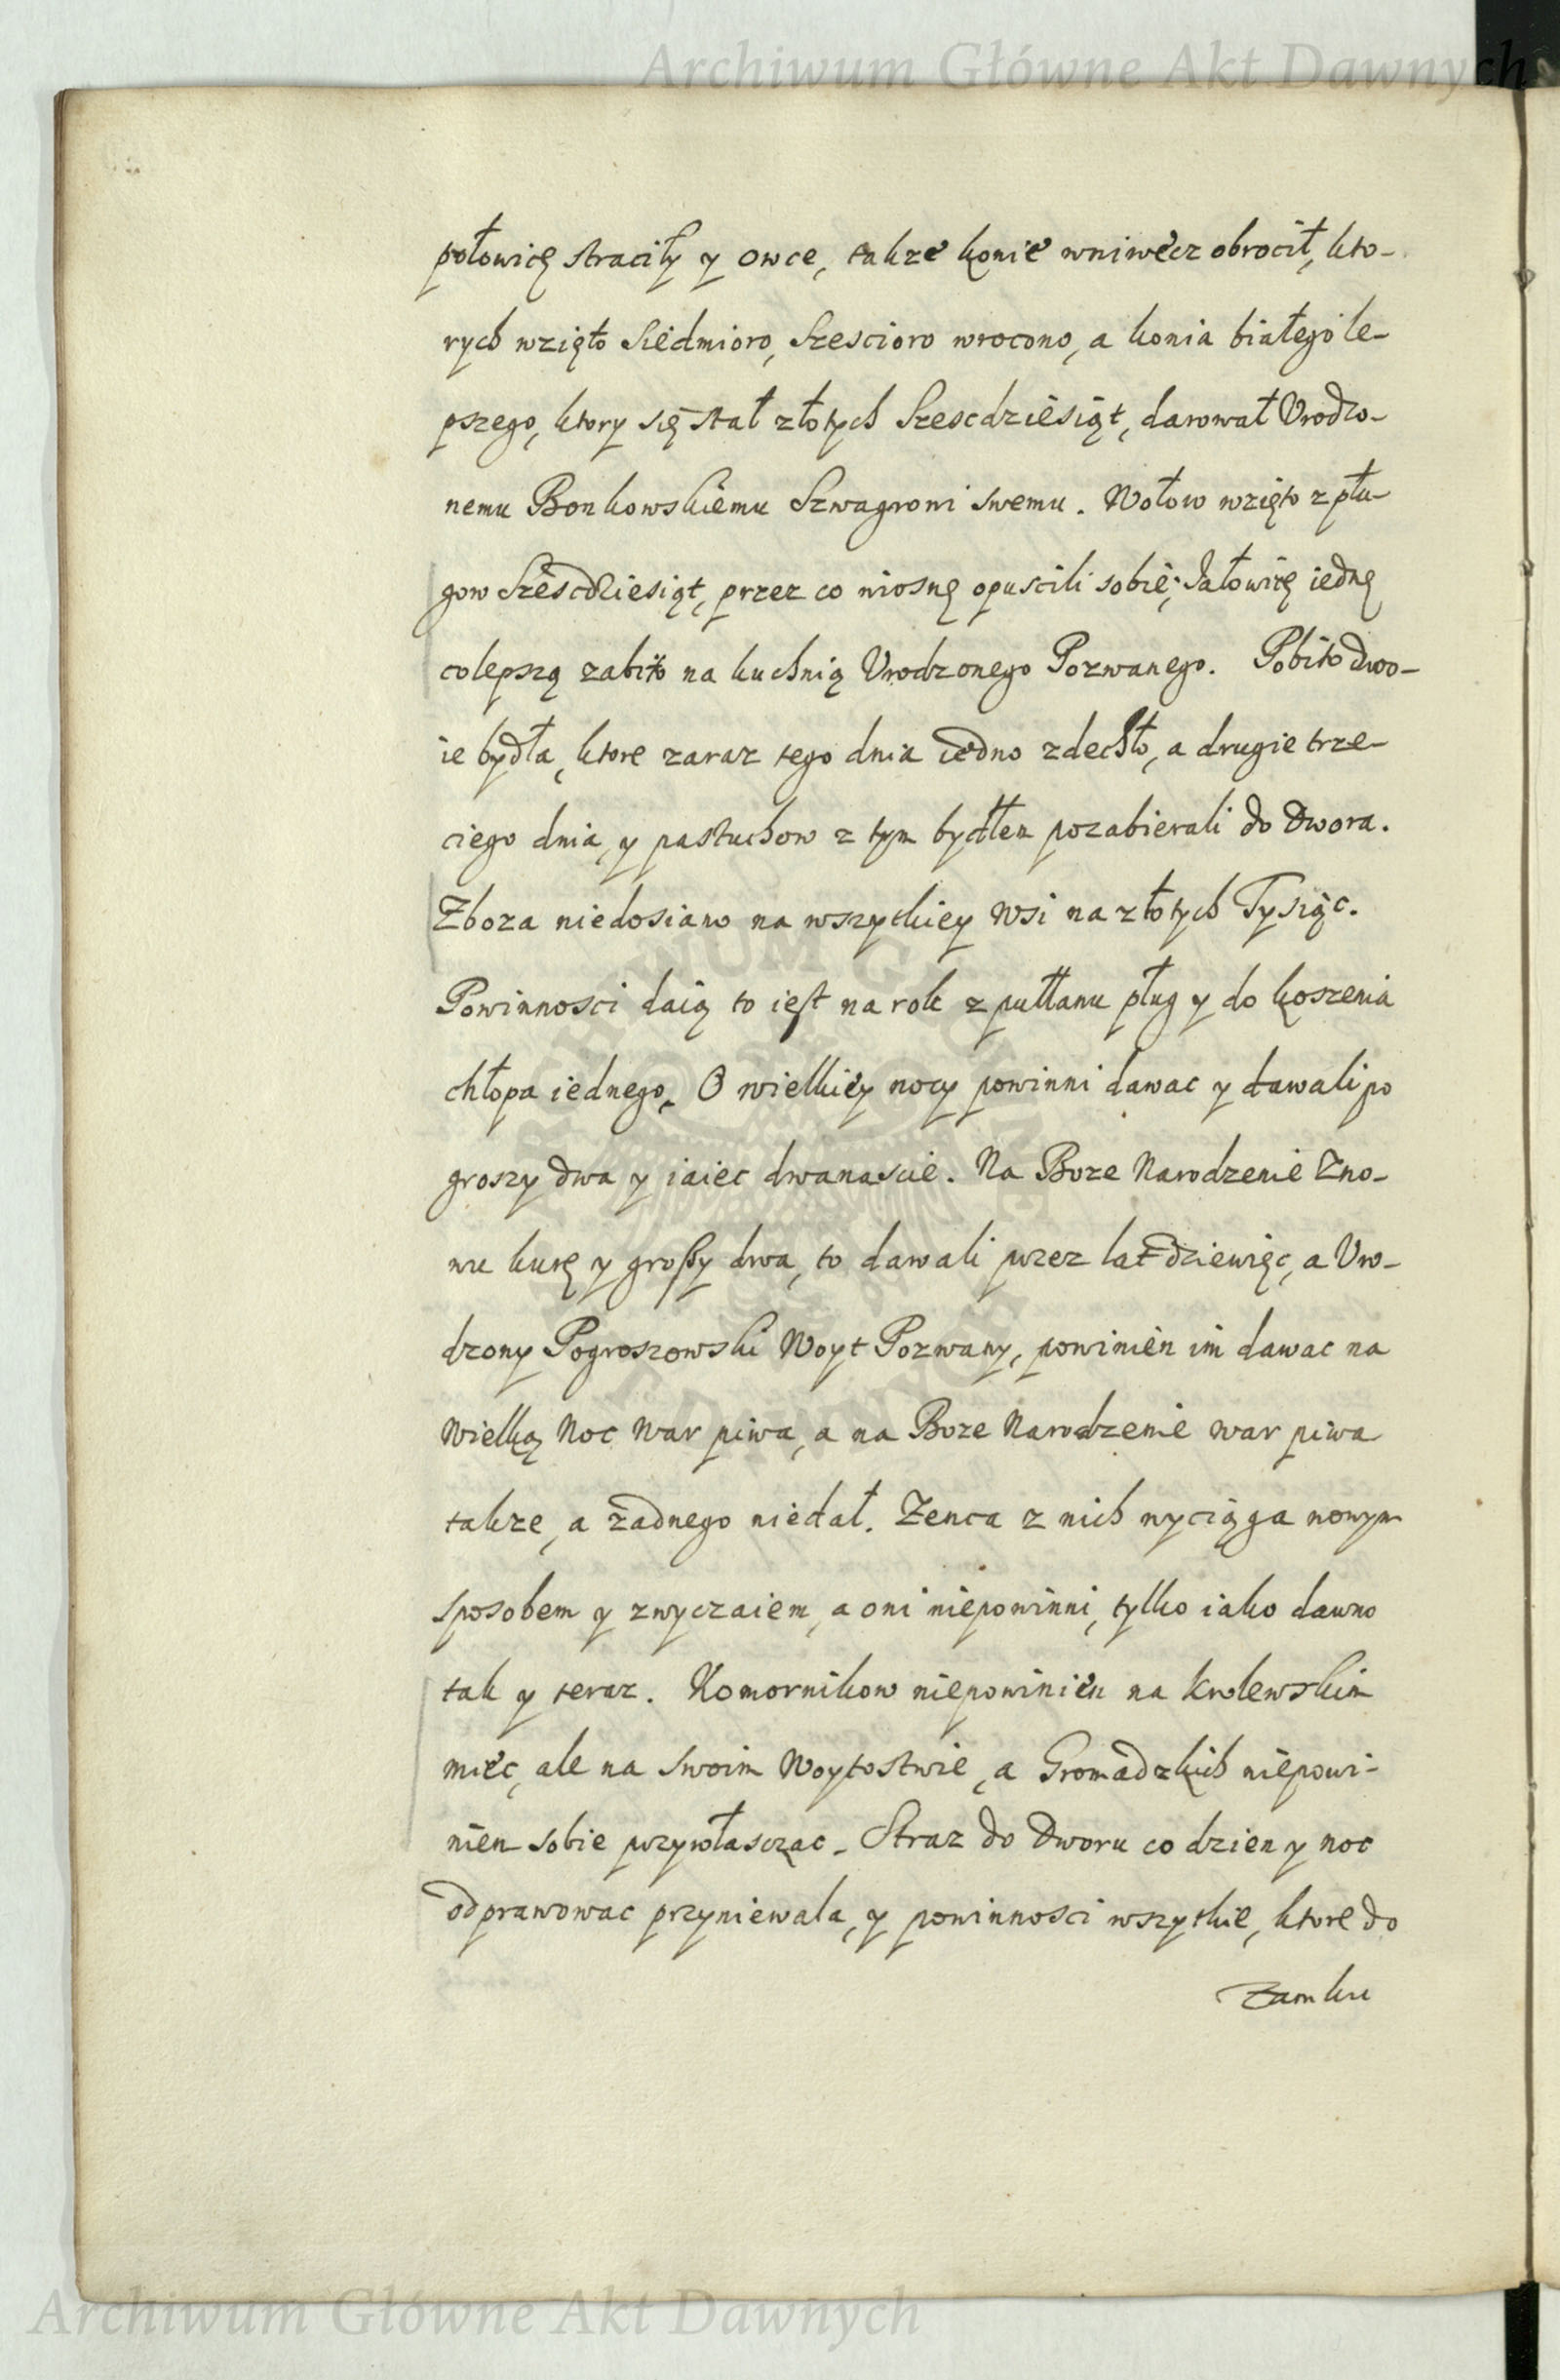 Archiwum Główne Akt Dawnych
połowicę straciły y owce, takze konie wniwecz obrocił, kto-
rych wzięto Siedmioro, Szescioro wrocono, a konia białego le-
pszego, ktory się stał złotych Szescdziesiąt, darował Urodzo-
nemu Bonkowskiemu Szwagrowi swemu. Wołow wzięto z płu-
gow Szescdziesiąt, przez co wiosnę opuscili sobie; Jałowicę iednę
colepszą zabito na kuchnią Urodzonego Pozwanego. Pobito dwo-
ie bydła, ktore zaraz tego dnia iedno zdechło, a drugie trze-
ciego dnia, y pastuchow z tym bydłem pozabierali do Dwora.
Zboza niedosiano na wszytkiey Wsi na złotych Tysiąc.
Powinnosci daią to iest na rok z pułłanu pług y do koszenia
chłopa iednego. O wielkiey nocy powinni dawac y dawali po
groszy dwa y iaiec dwanascie. Na Boze Narodzenie Zno-
wu kurę y groszy dwa, to dawali przez lat dziewięc, a Uro-
dzony Pogroszowski Woyt Pozwany, powinien im dawac na
Wielką Noc War piwa, a na Boze Narodzenie war piwa
takze, a żadnego niedał. Zenca z nich wyciąga nowym
sposobem y zwyczaiem, a oni niepowinni, tylko iako dawno
tak y teraz. Komornikow niepowinien na krolewskim
miec, ale na swoim Woytostwie, a Gromadzkich niepowi-
nien sobie przywłasczac. Straz do Dworu co dzien y noc
odprawowac przyniewala, y powinnosci wszytkie, ktore do
Zamku
Archiwum Główne Akt Dawnych